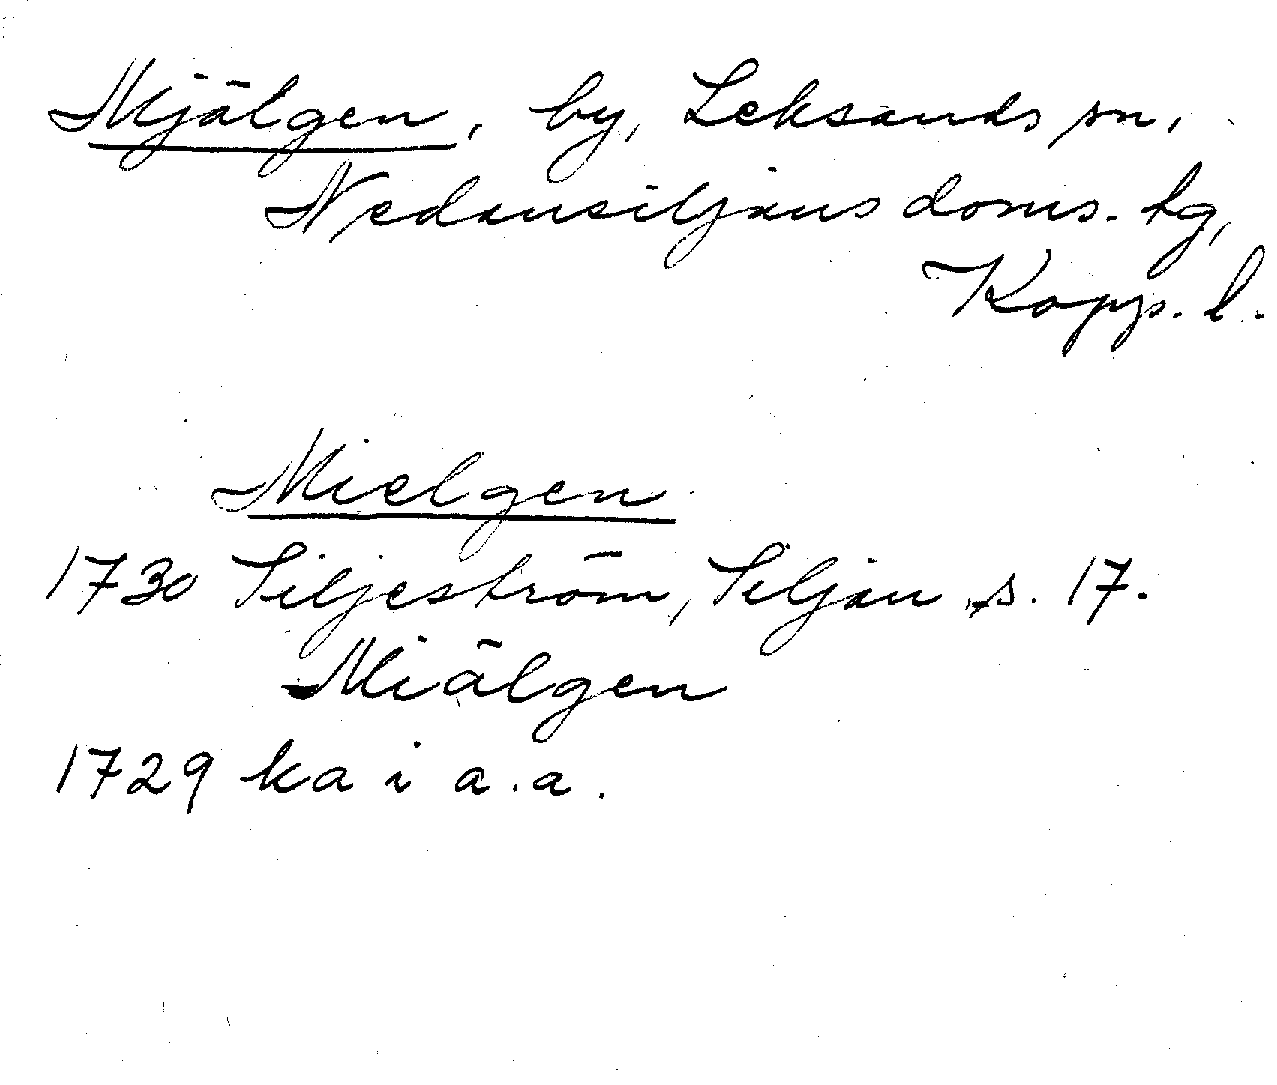 Mjälgen, by, Leksands sn,
Nedansiljans doms. hg,
Kopp. l.
Mielgen
1730 Siljeström, Siljan s. 17.
Miälgen
1729 ka i a.a.